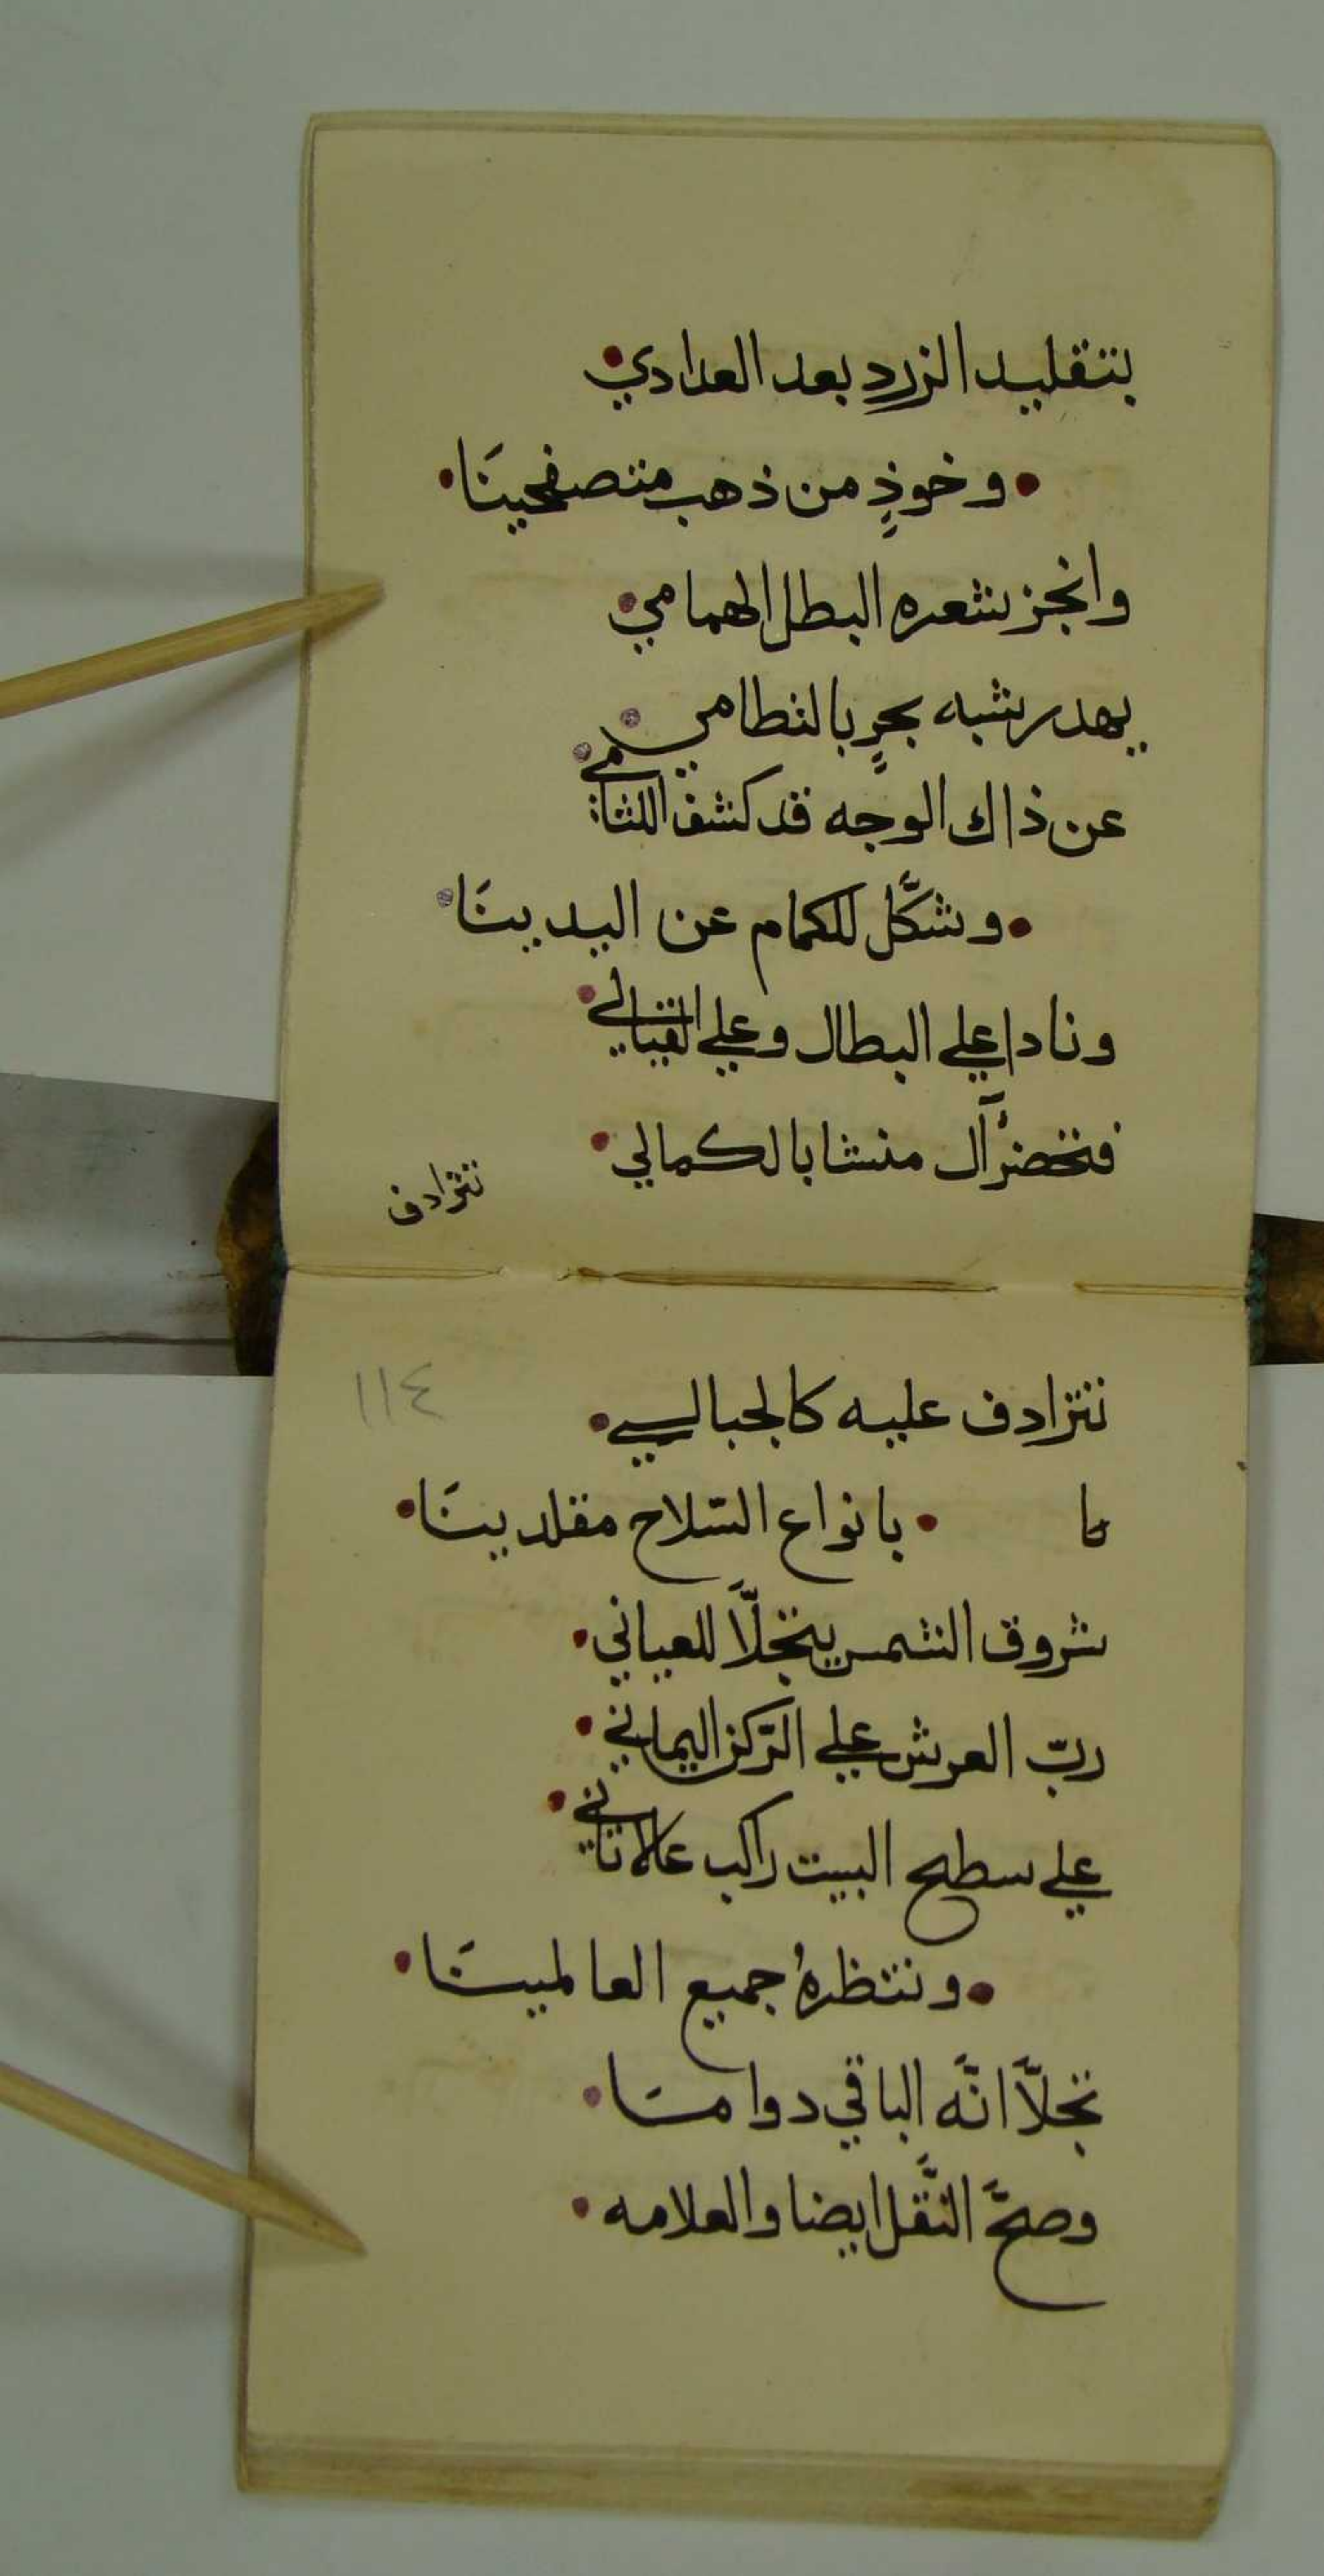 بتقليد الزردِ بعد العدادي
وخوذٍ من ذهب متصفحينَا
وانجز بشعره البطل الهمامي
يهدر بشبه بحرٍ بالنطامي
عن ذاك الوجه قد كشف اللثامي
وشكَّل للكمام عن اليدينَا
ونادا علي البطال وعلي القبالي
فتحضر آل منشا بالكمالي
تترادف
١١٤
تترادف عليه كالجبالي
بانواع السّلاح مقلدينَا
شروق الشمس يتجلّا للعياني
ربّ العرش علي الرّكن اليماني
علي سطح البيت راكب عالاتاني
وننتظرهُ جميع العالمينَا
تجلّا انّه الباقي دوامَا
وصحَّ النَّقل ايضا والعلامه